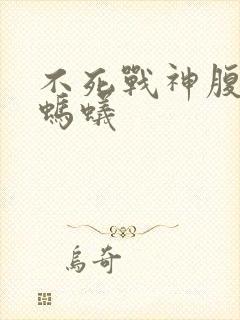 不死戰神腹
螞蟻
烏奇